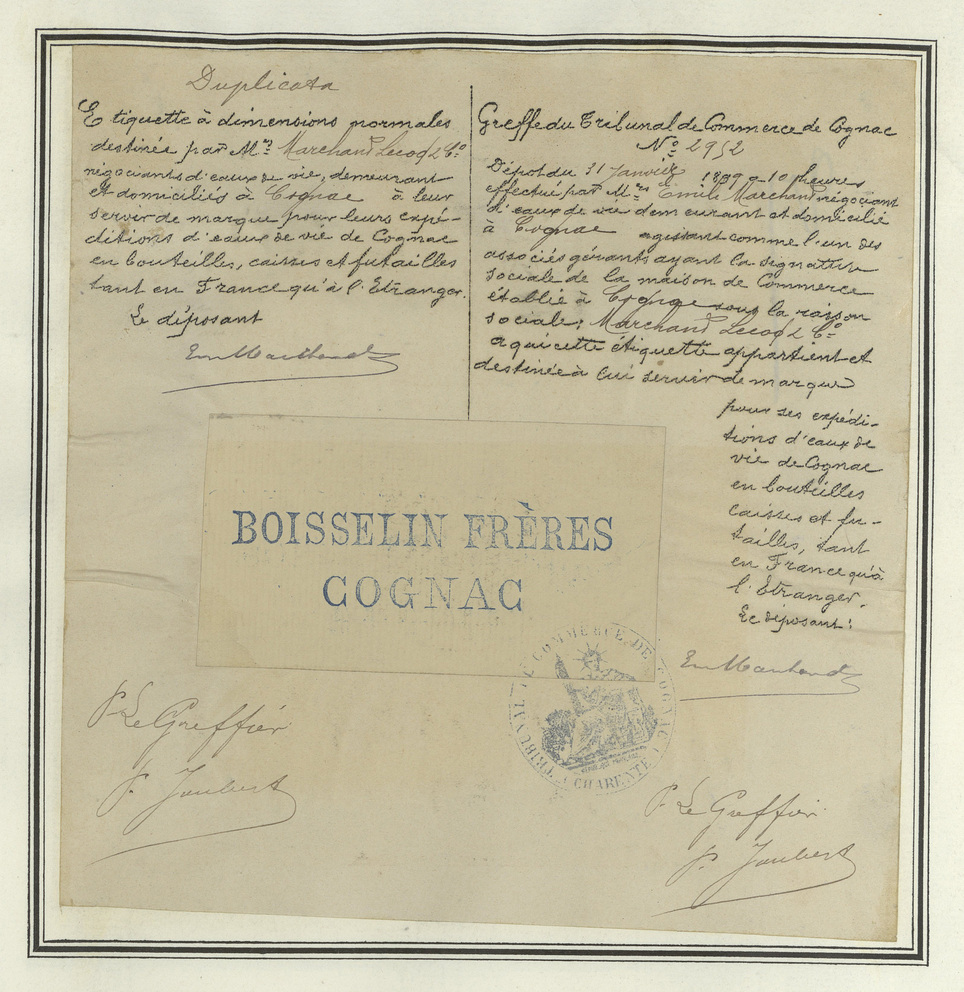 Duplicata
Etiquette à dimensions normales
destinée par Mrs Marchand Lecoq & Co
négociants d'eaux de vie, demeurant
et domiciliés à Cognac à leur
servir de marque pour leurs expé-
ditions d'eaux de vie de Cognac
en bouteilles, caisses et futailles
tant en France qu'à l'Etranger.
Le déposant
Em Marchand
Greffe du Tribunal de Commerce de Cognac
No 2952
Dépôt du 31 Janvier à 10 heures
effectué par Mrs Emile Marchand négociant
d'eaux de vie demeurant et domicilié
à Cognac agissant comme l'un des
associés gérants ayant la signature
sociale de la maison de Commerce
établie à Cognac sous la raison
sociale: Marchand Lecoq & Co
à qui cette étiquette appartient et
destinée à lui servir de marque
pour ses expédi-
tions d'eaux de
vie de Cognac
en bouteilles
caisses et fu-
tailles, tant
en France qu'à
l'Etranger.
Le déposant:
Em Marchand
BOISSELIN FRÈRES
COGNAC
TRIBUNAL DE COMMERCE DE COGNAC
CHARENTE
P. Le Greffier
P. Joubert
P. Le Greffier
P. Joubert